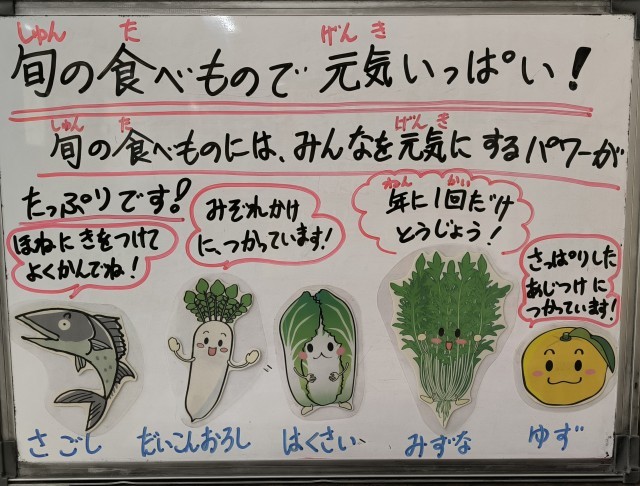 しゅん た げんき
旬の食べもので 元気いっぱい!
しゅん た げんき
旬の食べものには、みんなを元気にするパワーが
たっぷりです!
ほねに きをつけて
よくかんでね!
みぞれかけ
に、つかっています!
ねん かい
年に1回だけ
とうじょう!
さっぱりした
あじつけに
つかっています!
さごし だいこんおろし はくさい みずな ゆず